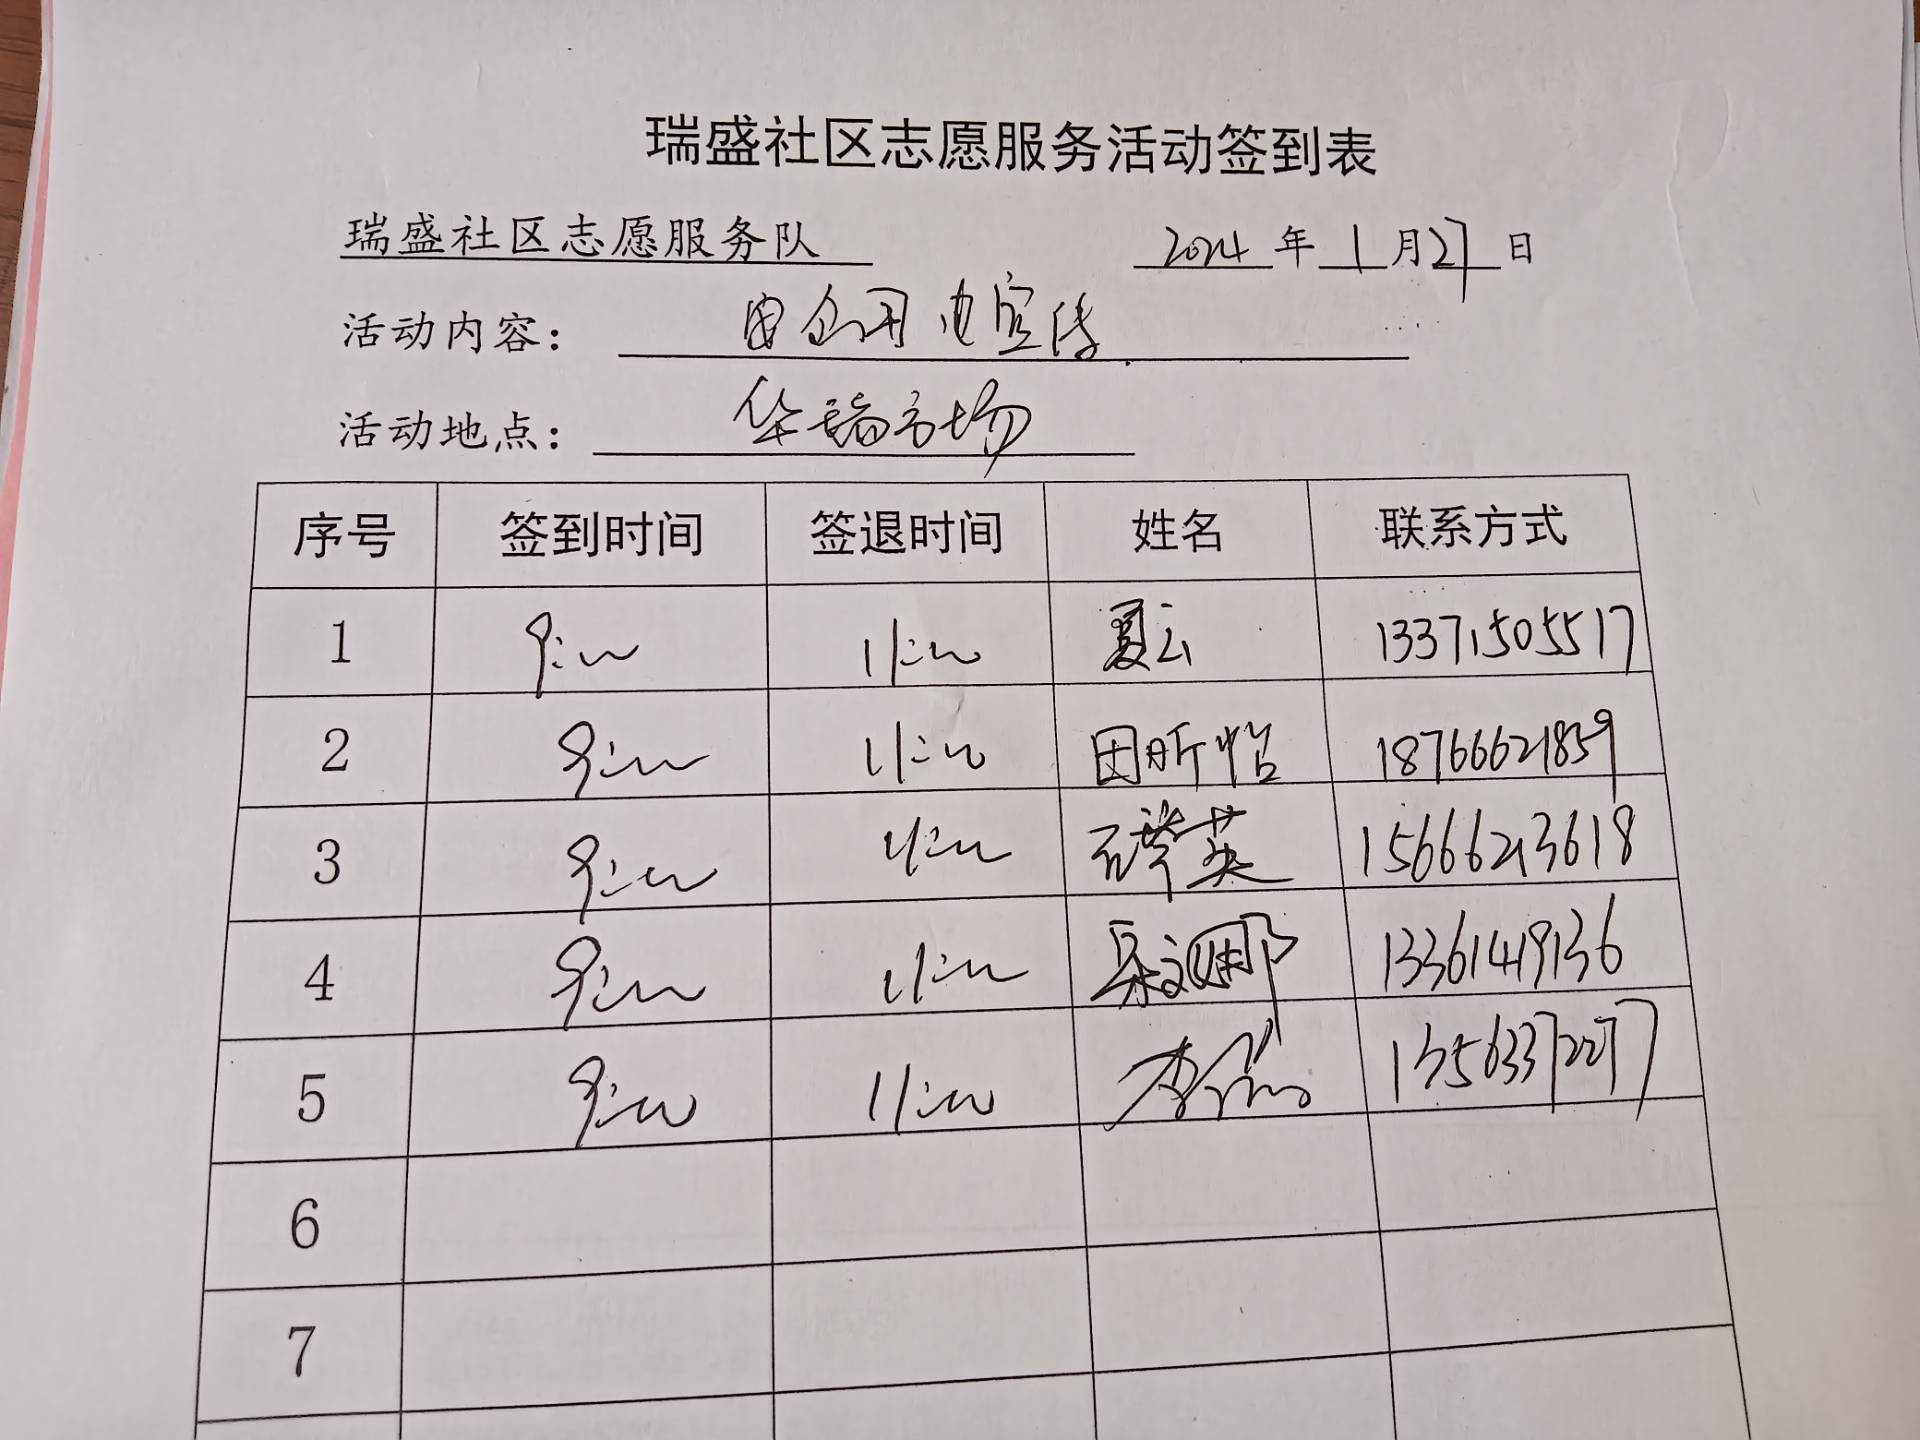 瑞盛社区志愿服务活动签到表
瑞盛社区志愿服务队 2024 年 1 月 27 日
活动内容: 安全用电宣传
活动地点: 华瑞市场
序号 签到时间 签退时间 姓名 联系方式
1 9:00 11:00 夏云 13371505517
2 9:00 11:00 田昕怡 18766621859
3 9:00 11:00 英 15666213618
4 9:00 11:00 13361419136
5 9:00 11:00 李 13563372277
6
7